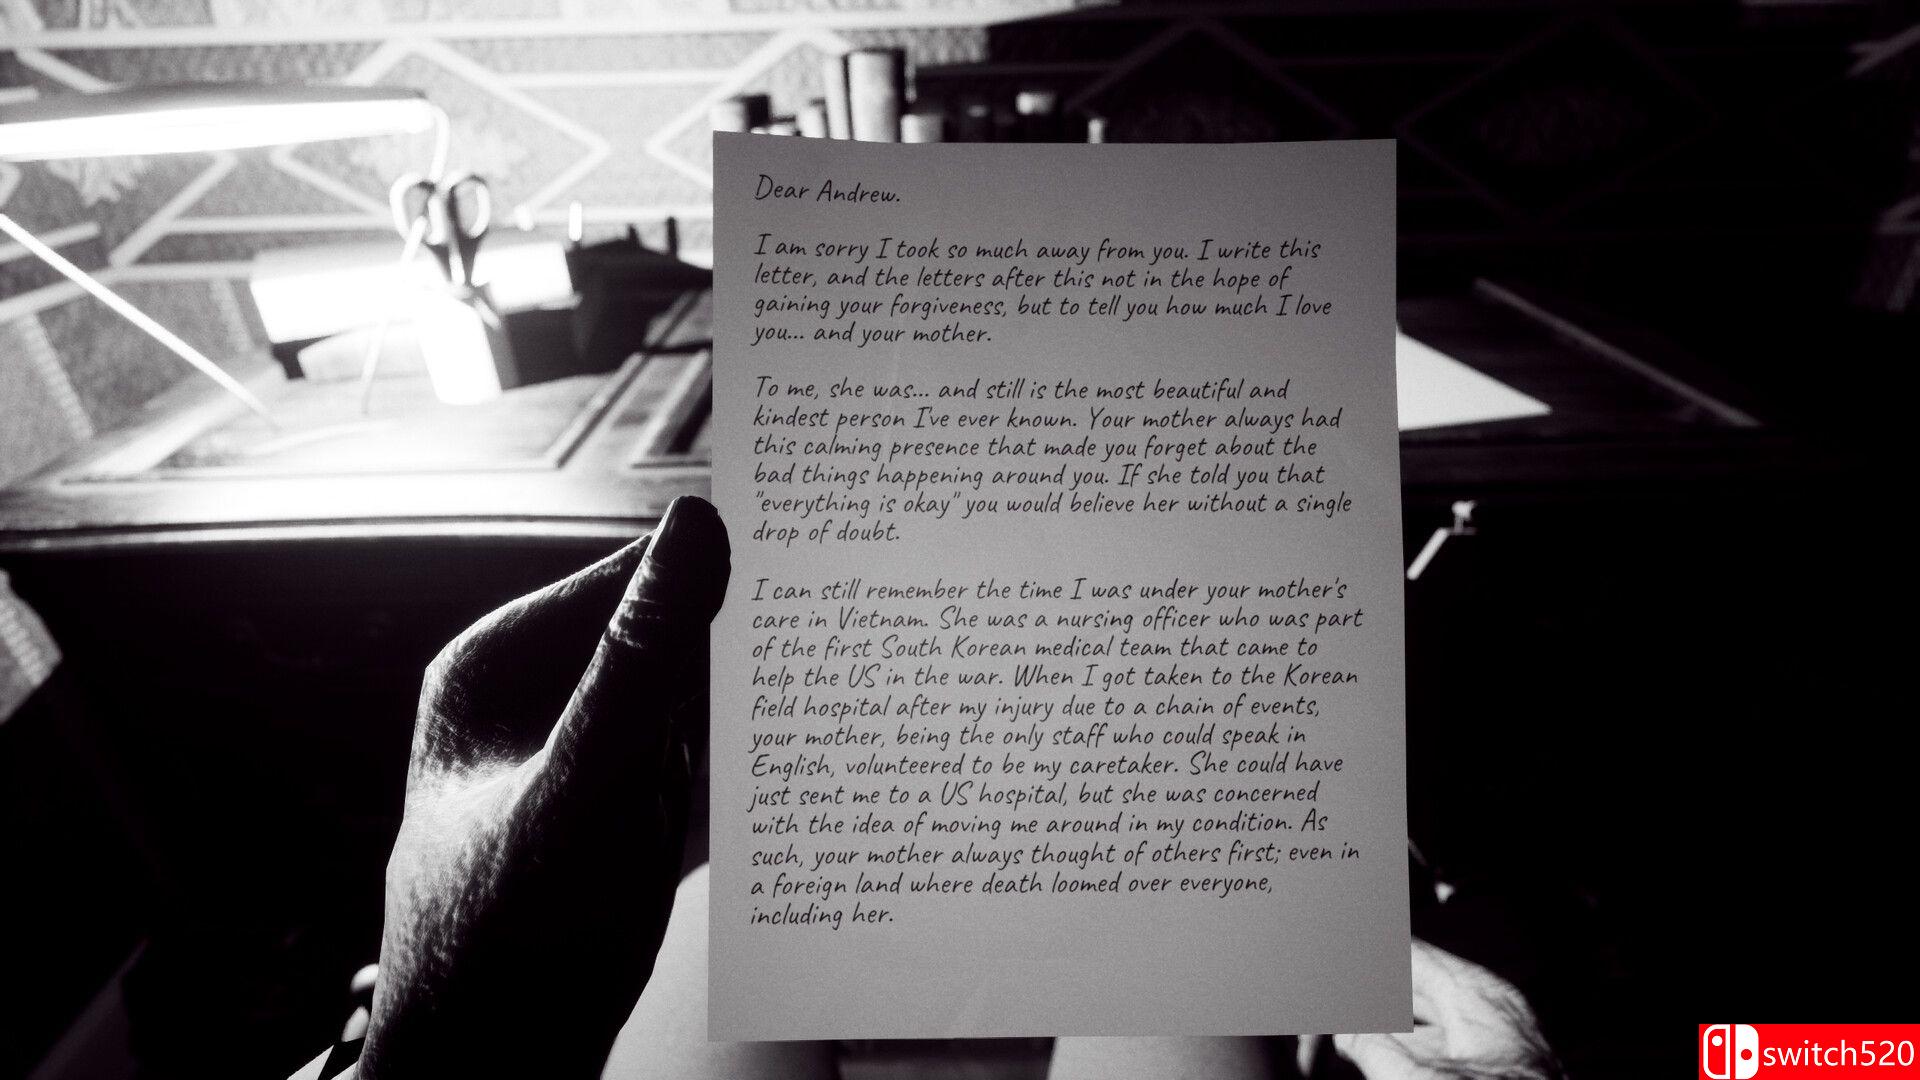 Dear Andrew.
I am sorry I took so much away from you. I write this
letter, and the letters after this not in the hope of
gaining your forgiveness, but to tell you how much I love
you... and your mother.
To me, she was... and still is the most beautiful and
kindest person I've ever known. Your mother always had
this calming presence that made you forget about the
bad things happening around you. If she told you that
"everything is okay" you would believe her without a single
drop of doubt.
I can still remember the time I was under your mother's
care in Vietnam. She was a nursing officer who was part
of the first South Korean medical team that came to
help the US in the war. When I got taken to the Korean
field hospital after my injury due to a chain of events,
your mother, being the only staff who could speak in
English, volunteered to be my caretaker. She could have
just sent me to a US hospital, but she was concerned
with the idea of moving me around in my condition. As
such, your mother always thought of others first; even in
a foreign land where death loomed over everyone,
including her.
switch520